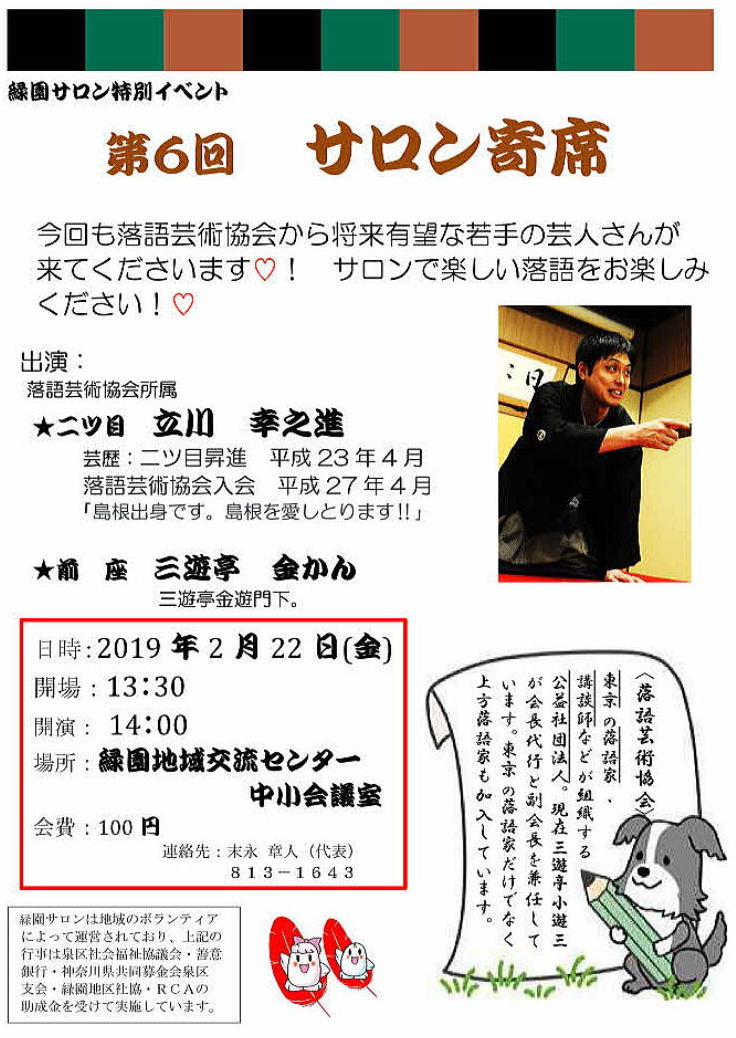 緑園サロン特別イベント
第6回　サロン寄席
今回も落語芸術協会から将来有望な若手の芸人さんが
来てくださいます♡！　サロンで楽しい落語をお楽しみ
ください！♡
出演：
落語芸術協会所属
★二ツ目　立川　幸之進
芸歴：二ツ目昇進　平成23年4月
落語芸術協会入会　平成27年4月
「島根出身です。島根を愛しとります!!」
★前　座　三遊亭　金かん
三遊亭金遊門下。
日時：2019年2月22日(金)
開場：13:30
開演：14:00
場所：緑園地域交流センター
中小会議室
会費：100円
連絡先：末永 章人（代表）
８１３－１６４３
〈落語芸術協会〉
東京の落語家・
講談師などが組織する
公益社団法人。現在三遊亭小遊三
が会長代行と副会長を兼任して
います。東京の落語家だけでなく
上方落語家も加入しています。
緑園サロンは地域のボランティア
によって運営されており、上記の
行事は泉区社会福祉協議会・善意
銀行・神奈川県共同募金会泉区
支会・緑園地区社協・ＲＣＡの
助成金を受けて実施しています。